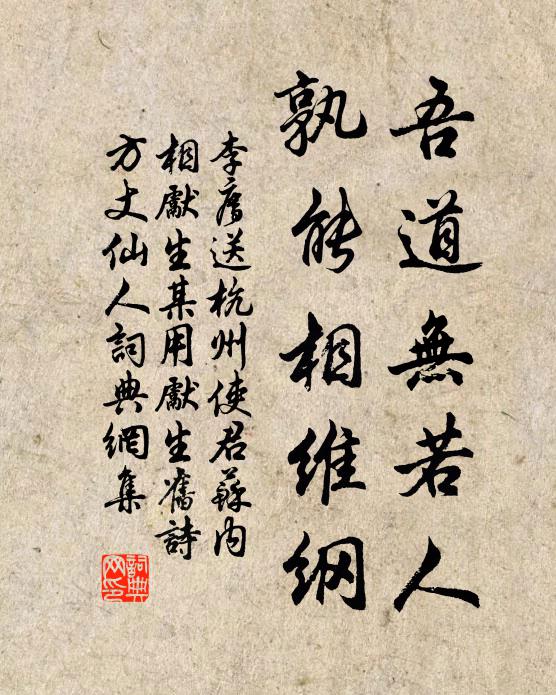 吾道無若人
孰能相維綱
李廌送杭州使君蘇内
相獻生某用獻生舊詩
方丈仙人詞典網集
詞典網印